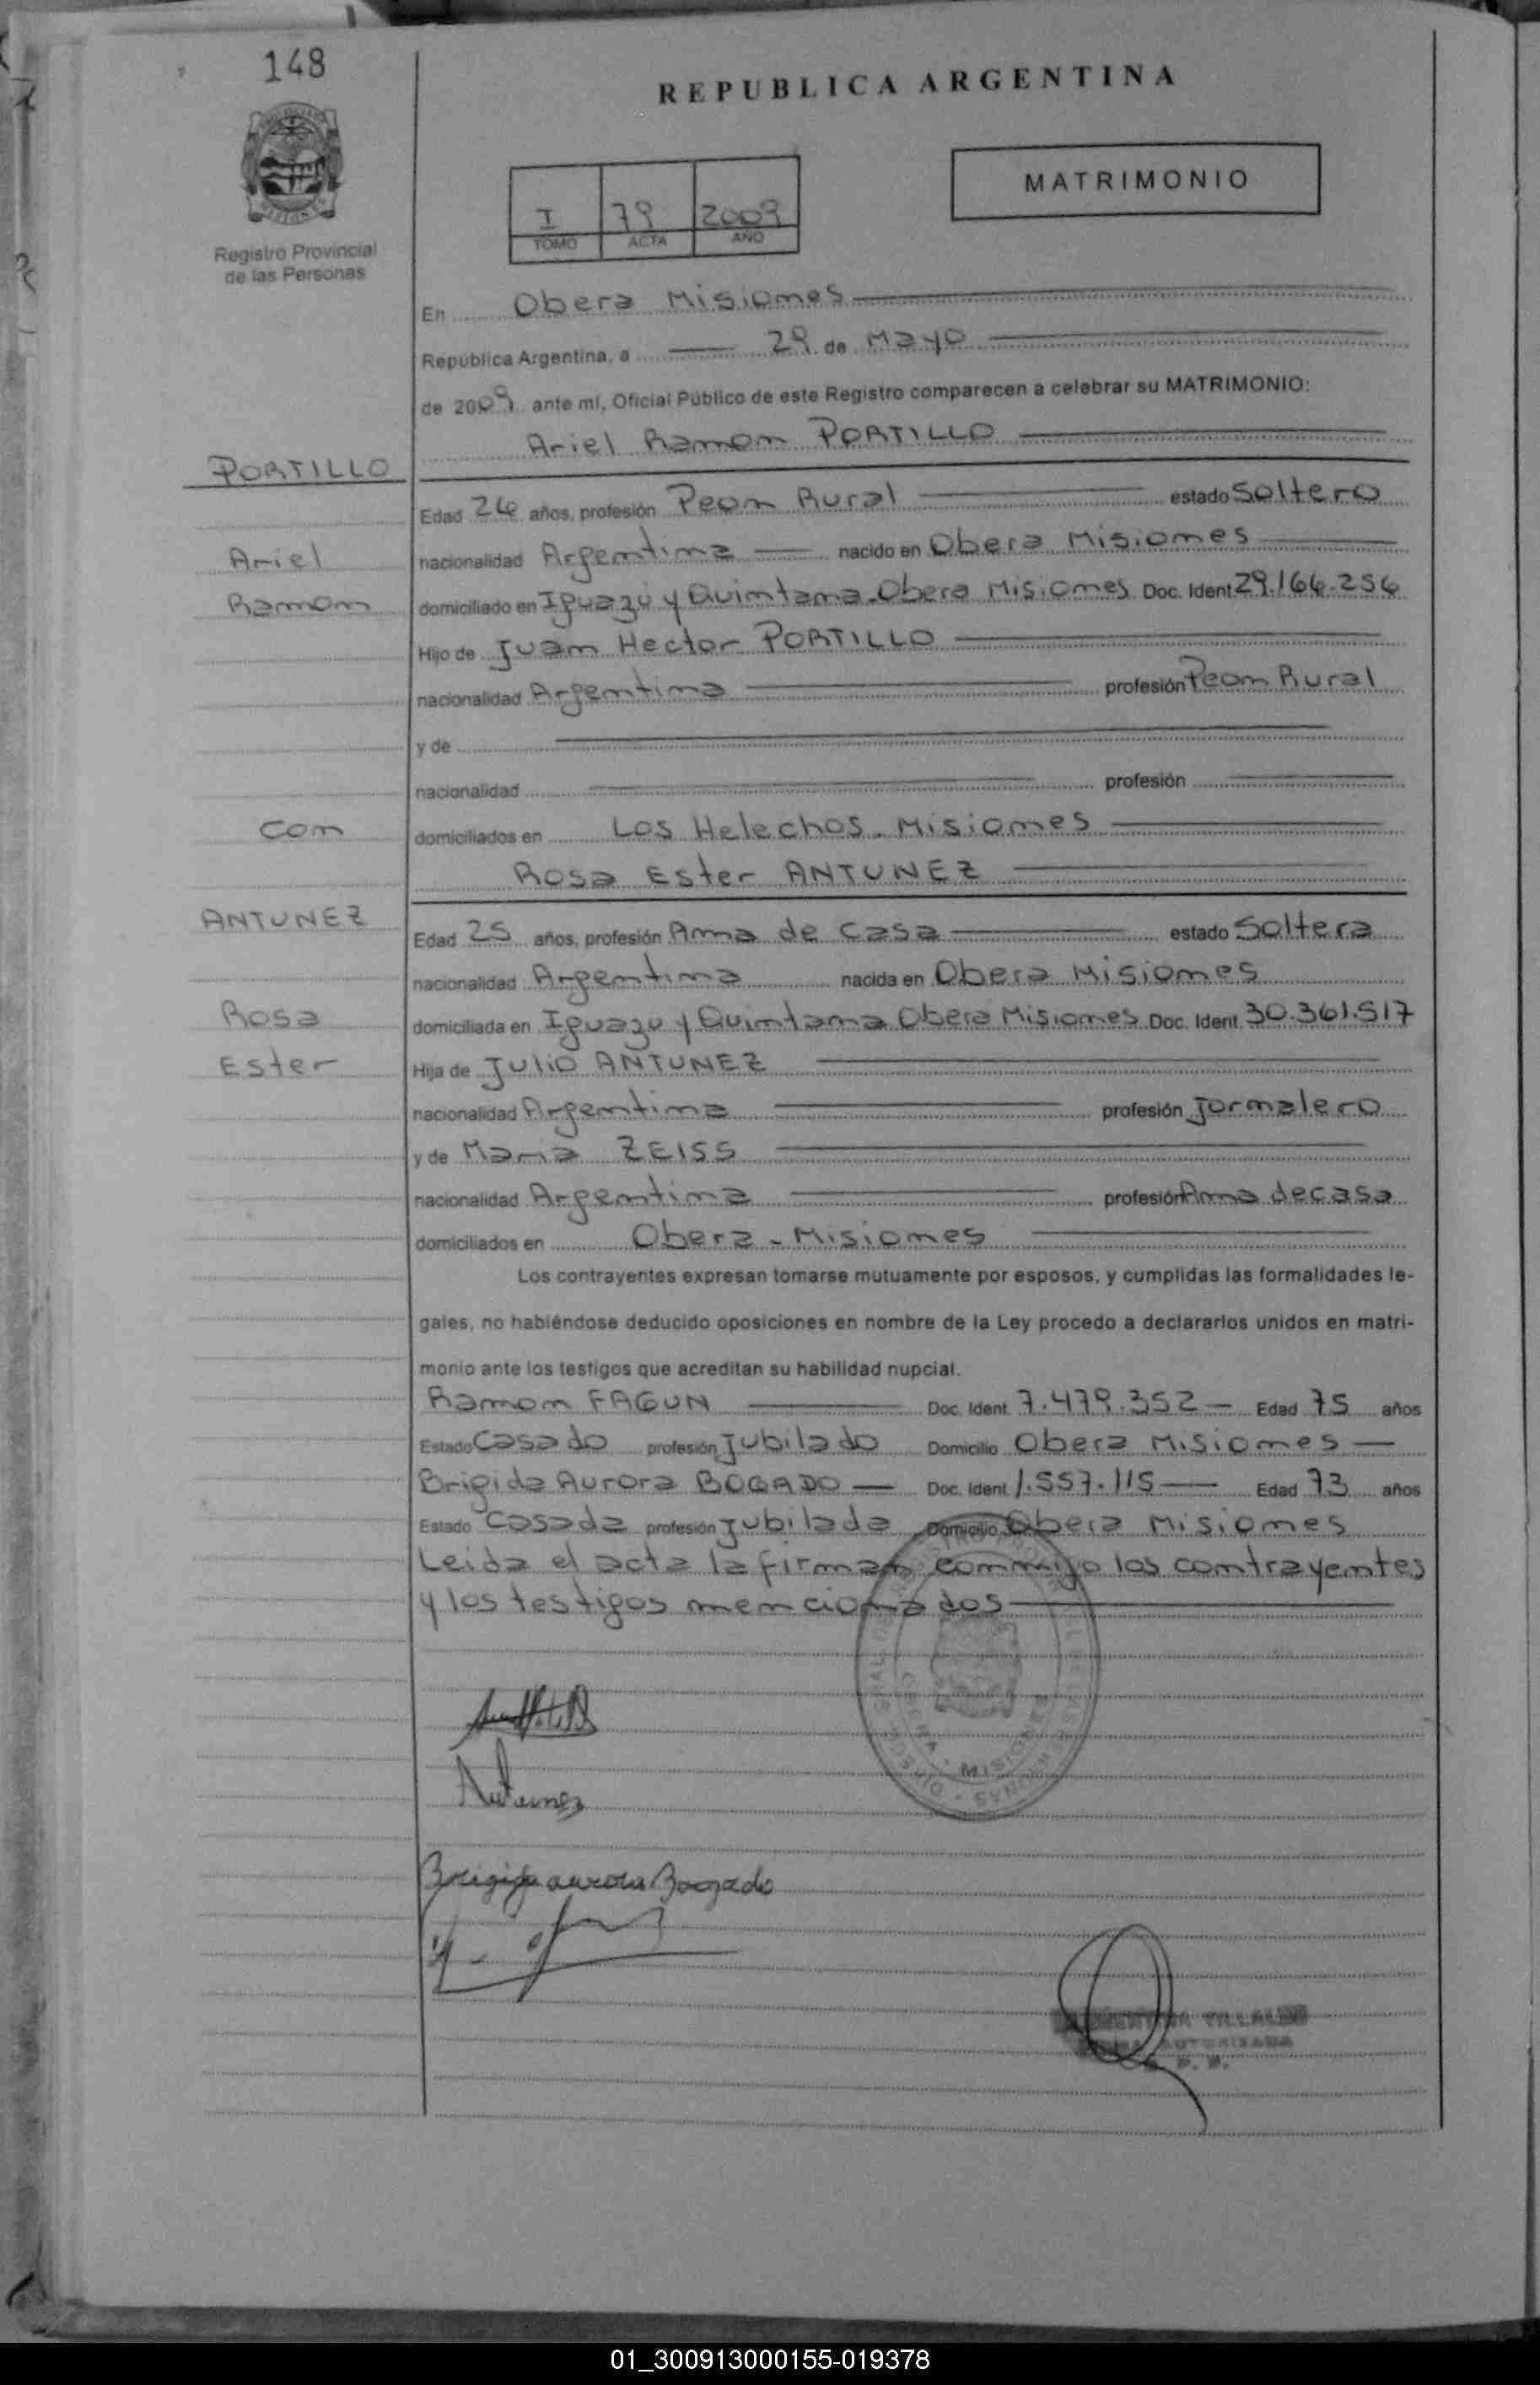 148
REPUBLICA ARGENTINA
MATRIMONIO
I 79 2009
TOMO ACTA AÑO
Registro Provincial
de las Personas
En Obera Misiones
República Argentina, a 29 de Mayo
de 2009 ante mí, Oficial Público de este Registro comparecen a celebrar su MATRIMONIO:
Ariel Ramon PORTILLO
PORTILLO
Edad 26 años, profesión Peon Rural estado Soltero
Ariel
nacionalidad Argentina nacido en Obera Misiones
Ramon
domiciliado en Iguazú y Quintana-Obera Misiones Doc. Ident 29.166.256
Hijo de Juan Hector PORTILLO
nacionalidad Argentina profesión Peon Rural
y de
nacionalidad profesión
Con
domiciliados en Los Helechos-Misiones
Rosa Ester ANTUNEZ
ANTUNEZ
Edad 25 años, profesión Ama de casa estado Soltera
nacionalidad Argentina nacida en Obera Misiones
Rosa
domiciliada en Iguazu y Quintana Obera Misiones Doc. Ident. 30.361.517
Ester
Hija de Julio ANTUNEZ
nacionalidad Argentina profesión Jornalero
y de Maria ZEISS
nacionalidad Argentina profesión Ama de casa
domiciliados en Obera-Misiones
Los contrayentes expresan tomarse mutuamente por esposos, y cumplidas las formalidades le-
gales, no habiéndose deducido oposiciones en nombre de la Ley procedo a declararlos unidos en matri-
monio ante los testigos que acreditan su habilidad nupcial.
Ramon FAGUN Doc. Ident. 7.479.352 Edad 75 años
Estado Casado profesión Jubilado Domicilio Obera Misiones
Brigida Aurora BOGADO Doc. Ident. 1.557.115 Edad 73 años
Estado Casada profesión Jubilada Domicilio Obera Misiones
Leida el acta la firman conmigo los contrayentes
y los testigos mencionados
MISIONES
Antunez
Brigida aurora Bogado
AUTORIZADA
01_300913000155-019378